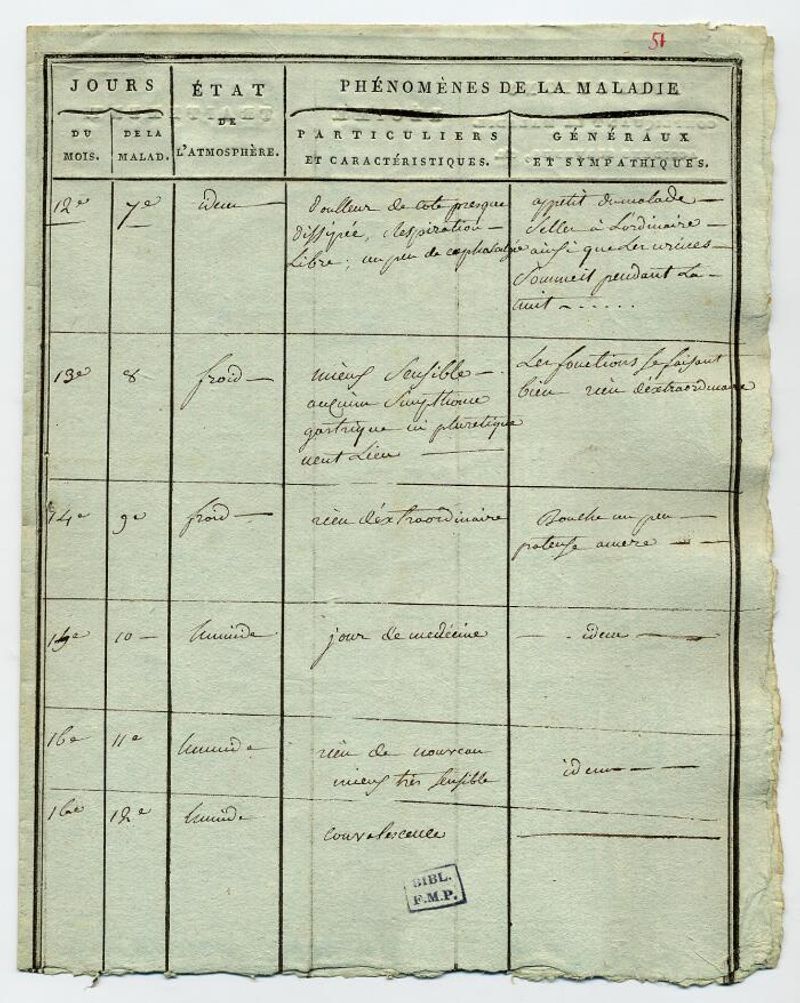 51
JOURS
ÉTAT
PHÉNOMÈNES DE LA MALADIE
DU
MOIS.
DE LA
MALAD.
DE
L'ATMOSPHÈRE.
PARTICULIERS
ET CARACTÉRISTIQUES.
GÉNÉRAUX
ET SYMPATHIQUES.
12e
7e
idem —
doulleur de cote presque
dissipée, Respiration —
Libre; un peu de cephalalgie
appetit du malade —
Selles à Lordinaire —
ainsi que Les urines —
Sommeil pendant La —
nuit — . . . . .
13e
8
froid —
mieux Sensible —
aucuin Simpthome
gastrique ni pluretique
neut Lieu —
Les fonctions se faisant
bien rien déxtraordinaire
14e
9e
froid —
rien déxtraordinaire
Bouche un peu —
pateuse amere — —
10 —
humide
jour de medécine
— idem —
16e
11e
humide
rien de nouveau
mieux très Sensible
idem —
12e
humide
convalescence
BIBL.
F.M.P.